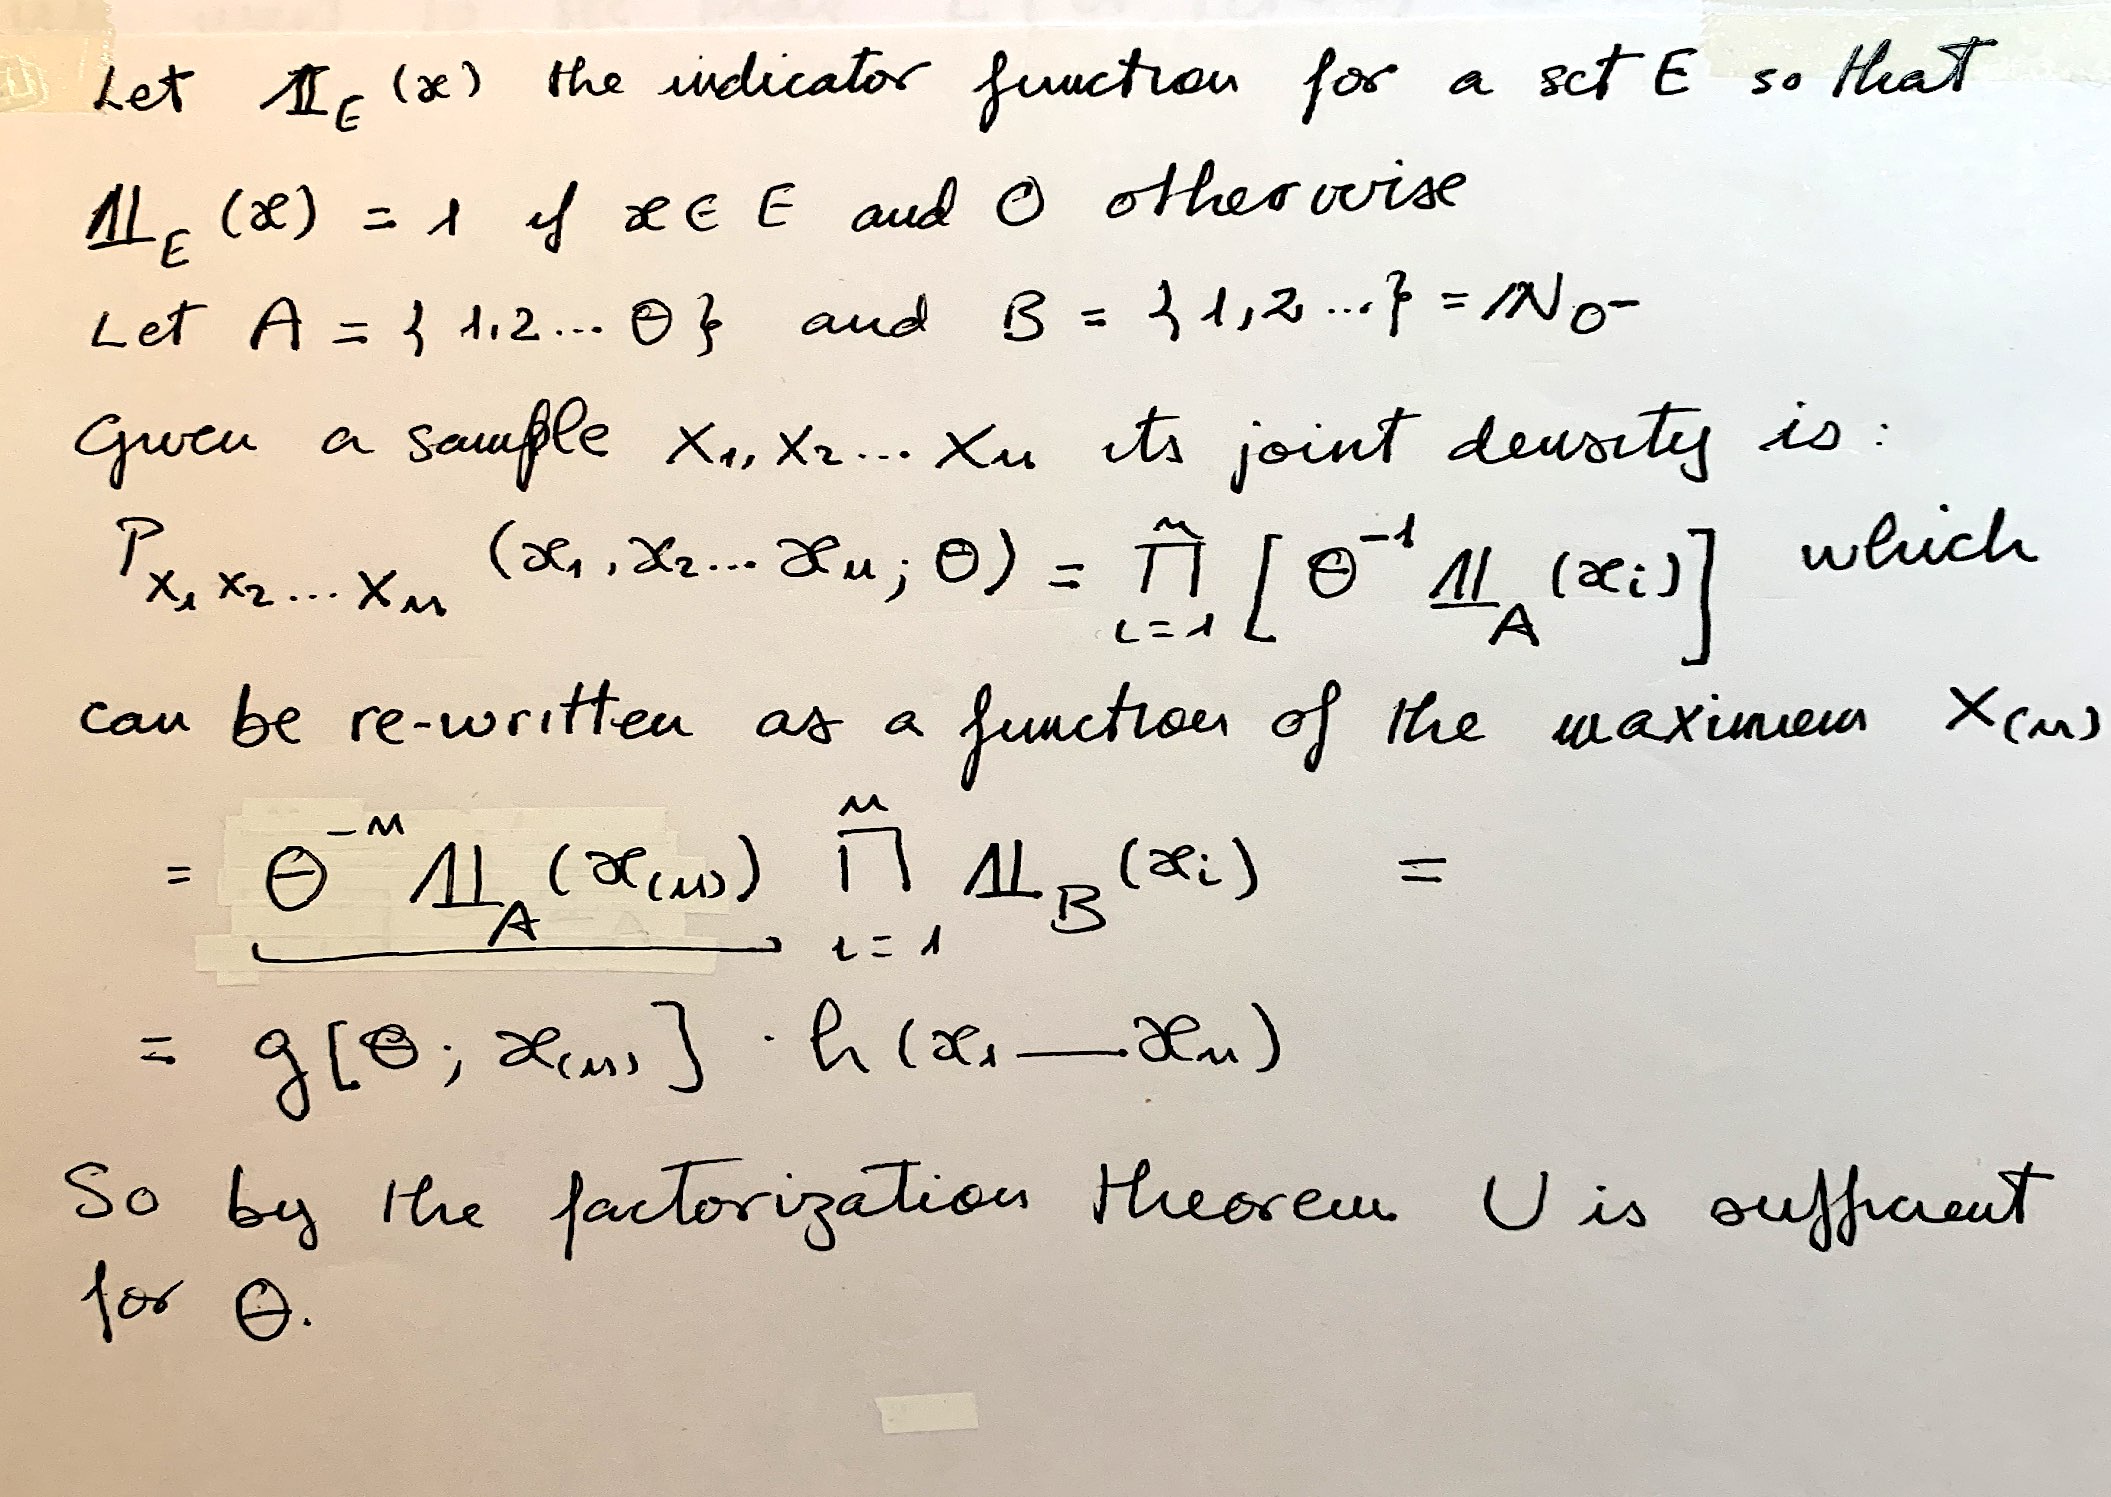 Let 𝟙_E (x) the indicator function for a set E so that
𝟙_E (x) = 1 if x ∈ E and 0 otherwise
Let A = { 1,2... θ } and B = { 1,2 ... } = ℕ_0-
Given a sample X_1, X_2 ... X_n its joint density is :
P_{X_1 X_2 ... X_n} (x_1, x_2 ... x_n ; θ) = ∏_{i=1}^{n} [ θ^{-1} 𝟙_A (x_i) ] which
can be re-written as a function of the maximum X_(n)
= θ^{-n} 𝟙_A (x_(n)) ∏_{i=1}^{n} 𝟙_B (x_i) =
= g [ θ ; x_(n) ] · h ( x_1 — x_n )
So by the factorization theorem U is sufficient
for θ.